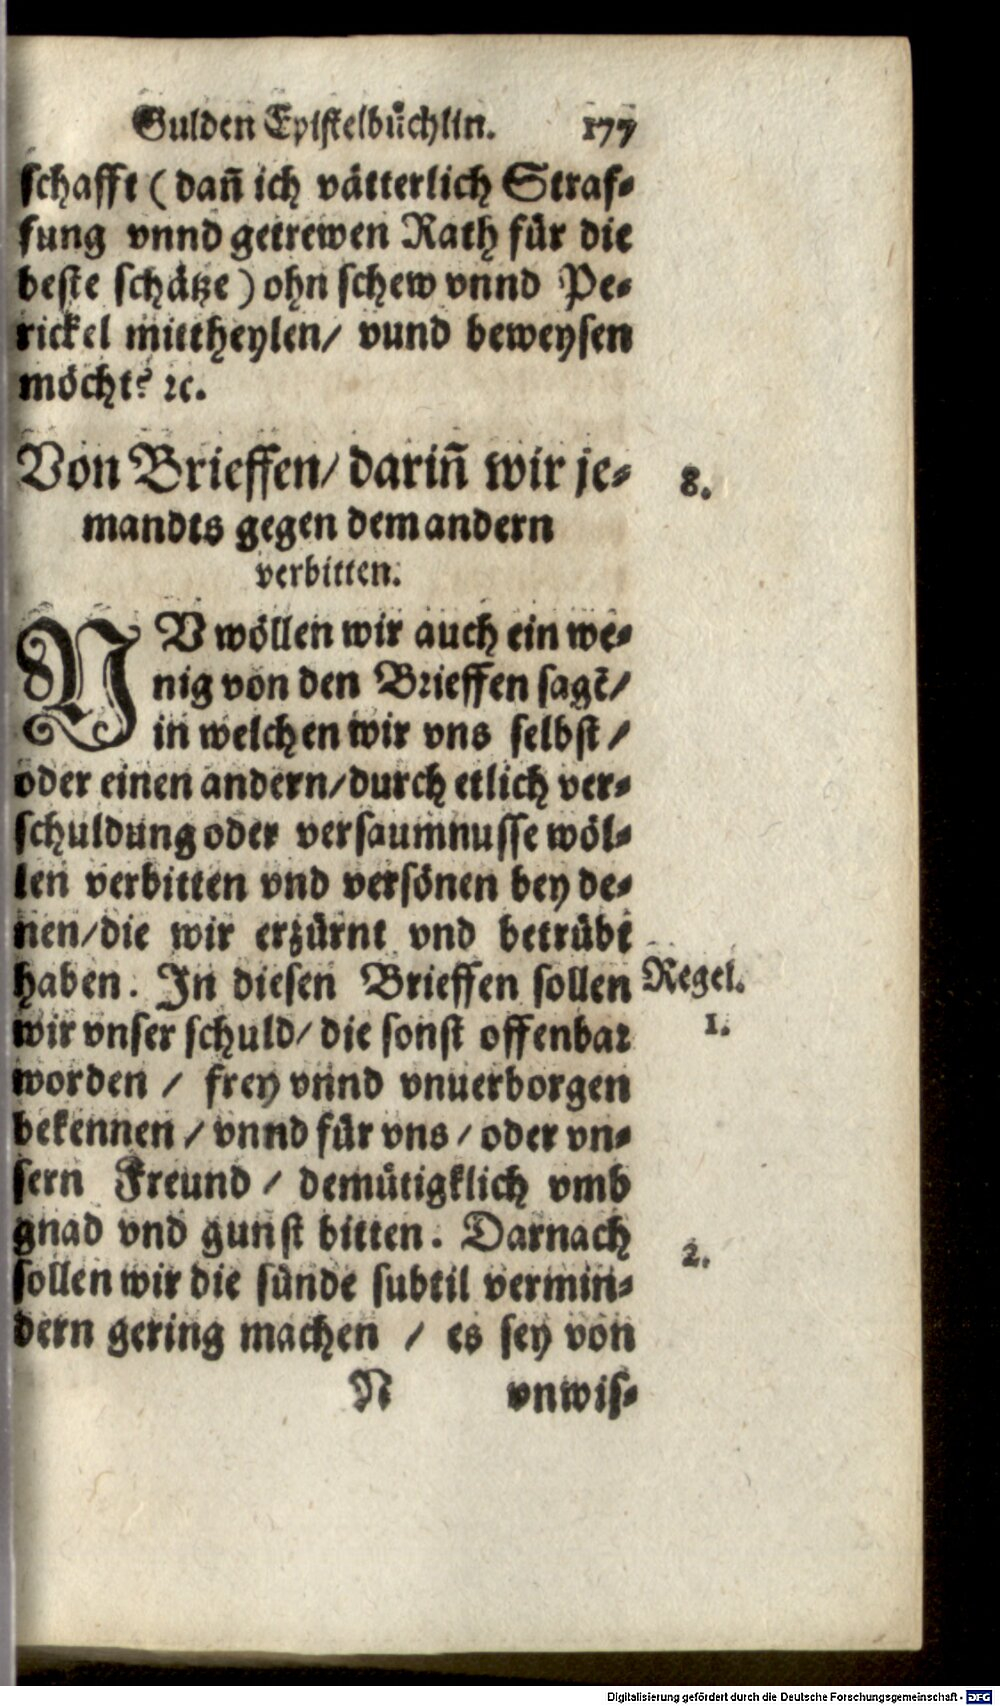 Gulden Epistelbuͤchlin. 177
schafft (dañ ich vätterlich Straf⸗
fung vnnd getrewen Rath für die
beste schätze) ohn schew vnnd Pe⸗
rickel mittheylen/ vund beweysen
möcht? ꝛc.
Von Brieffen/ dariñ wir je⸗ 8.
mandts gegen dem andern
verbitten.
NV wöllen wir auch ein we⸗
nig von den Brieffen sagẽ/
in welchen wir vns selbst/
oder einen andern/durch etlich ver⸗
schuldung oder versaumnusse wöl⸗
len verbitten vnd versönen bey de⸗
nen/die wir erzürnt vnd betrübt
haben. In diesen Brieffen sollen Regel.
wir vnser schuld/ die sonst offenbar 1.
worden / frey vnnd vnuerborgen
bekennen / vnnd für vns / oder vn⸗
sern Freund / demütigklich vmb
gnad vnd gunst bitten. Darnach 2.
sollen wir die sünde subtil vermin⸗
dern gering machen / es sey von
N vnwis⸗
Digitalisierung gefördert durch die Deutsche Forschungsgemeinschaft - DFG